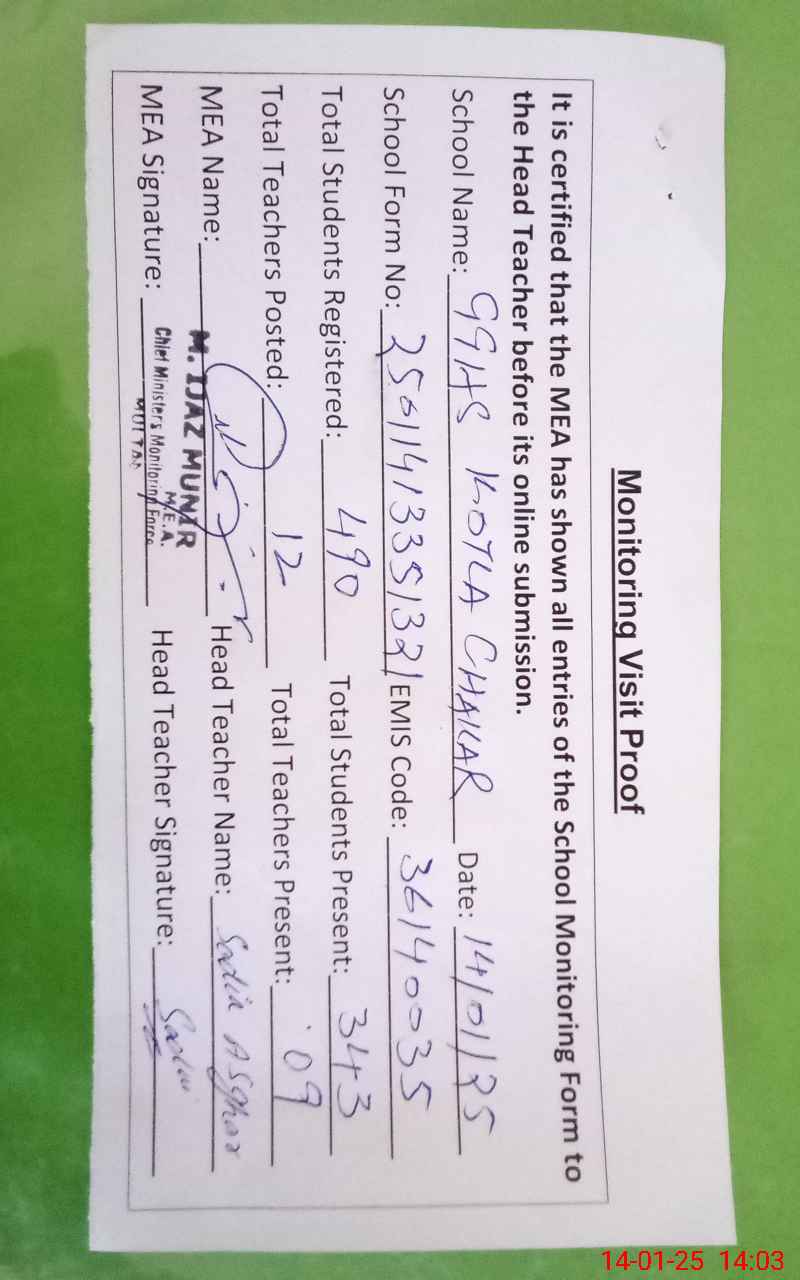 Monitoring Visit Proof
It is certified that the MEA has shown all entries of the School Monitoring Form to
the Head Teacher before its online submission.
School Name: GGHS KOTLA CHAKAR Date: 14/01/25
School Form No: EMIS Code: 36140035
Total Students Registered: 490 Total Students Present: 343
Total Teachers Posted: 12 Total Teachers Present: 09
MEA Name: Head Teacher Name: Sadia Asghar
M. IJAZ MUNIR
M.E.A.
Chief Minister's Monitoring Force
MULTAN
MEA Signature: Head Teacher Signature: Sadia
14-01-25 14:03